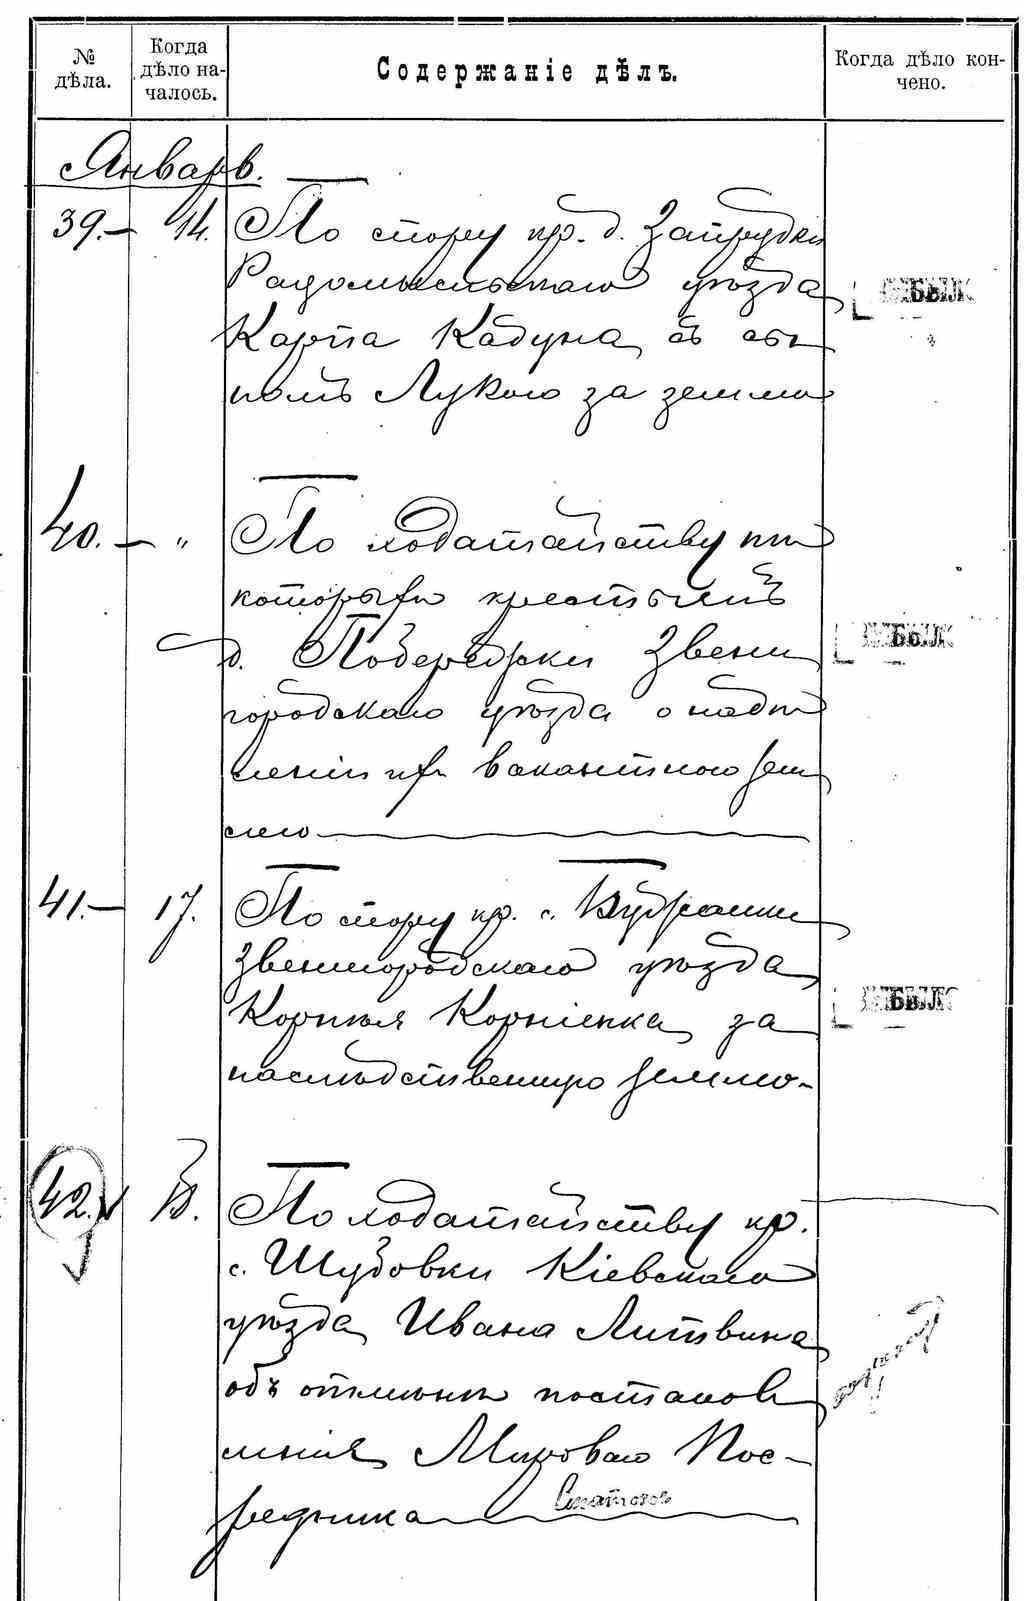 № дѣла.
Когда дѣло началось.
Содержаніе дѣлъ.
Когда дѣло кончено.
Январь.
39.— 14. По спору кр. д. Запрудки
Радомысльскаго уѣзда
Карпа Кабуна съ сы
номъ Лукою за землю
40.— „ По ходатайству нѣ
которыхъ крестьянъ
д. Побережки Звени
городскаго уѣзда о надѣ
леніи ихъ вакантною зем
лею
41.— 17. По спору кр. с.
Звенигородскаго уѣзда
Корнѣя Корніенка за
наслѣдственную землю.
42. 18. По ходатайству кр.
с. Шубовки Кіевскаго
уѣзда Ивана Литвина
объ отмѣнѣ постанов
ленія Мироваго Пос-
редника